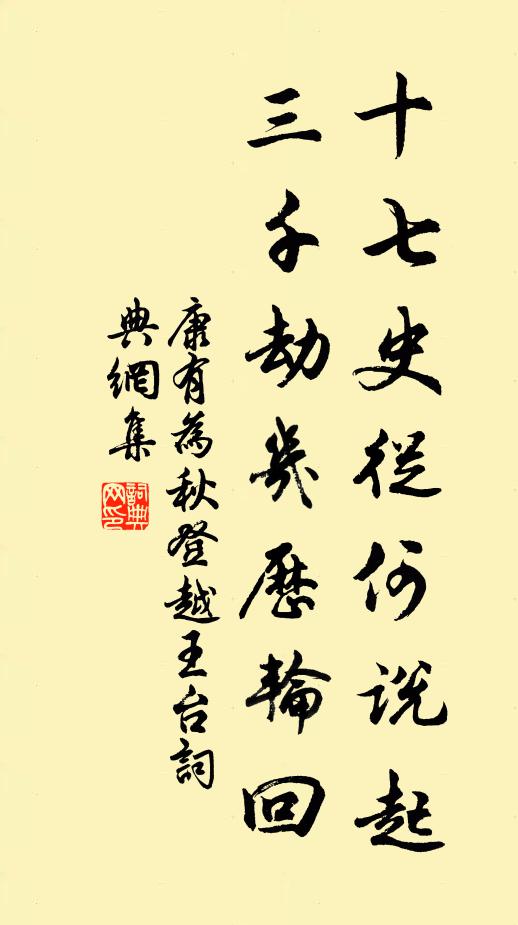 十七史從何說起
三千劫幾歷輪回
康有為秋登越王台詞
典網集
詞典
网印